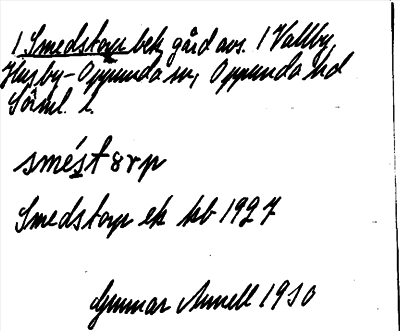 1 Smedstorp bek. gård avs. 1 Vallby,
Husby-Oppunda sn, Oppunda hd
Sörml. l.
sméstörp
Smedstorp ek kb 1927
Gunnar 1930